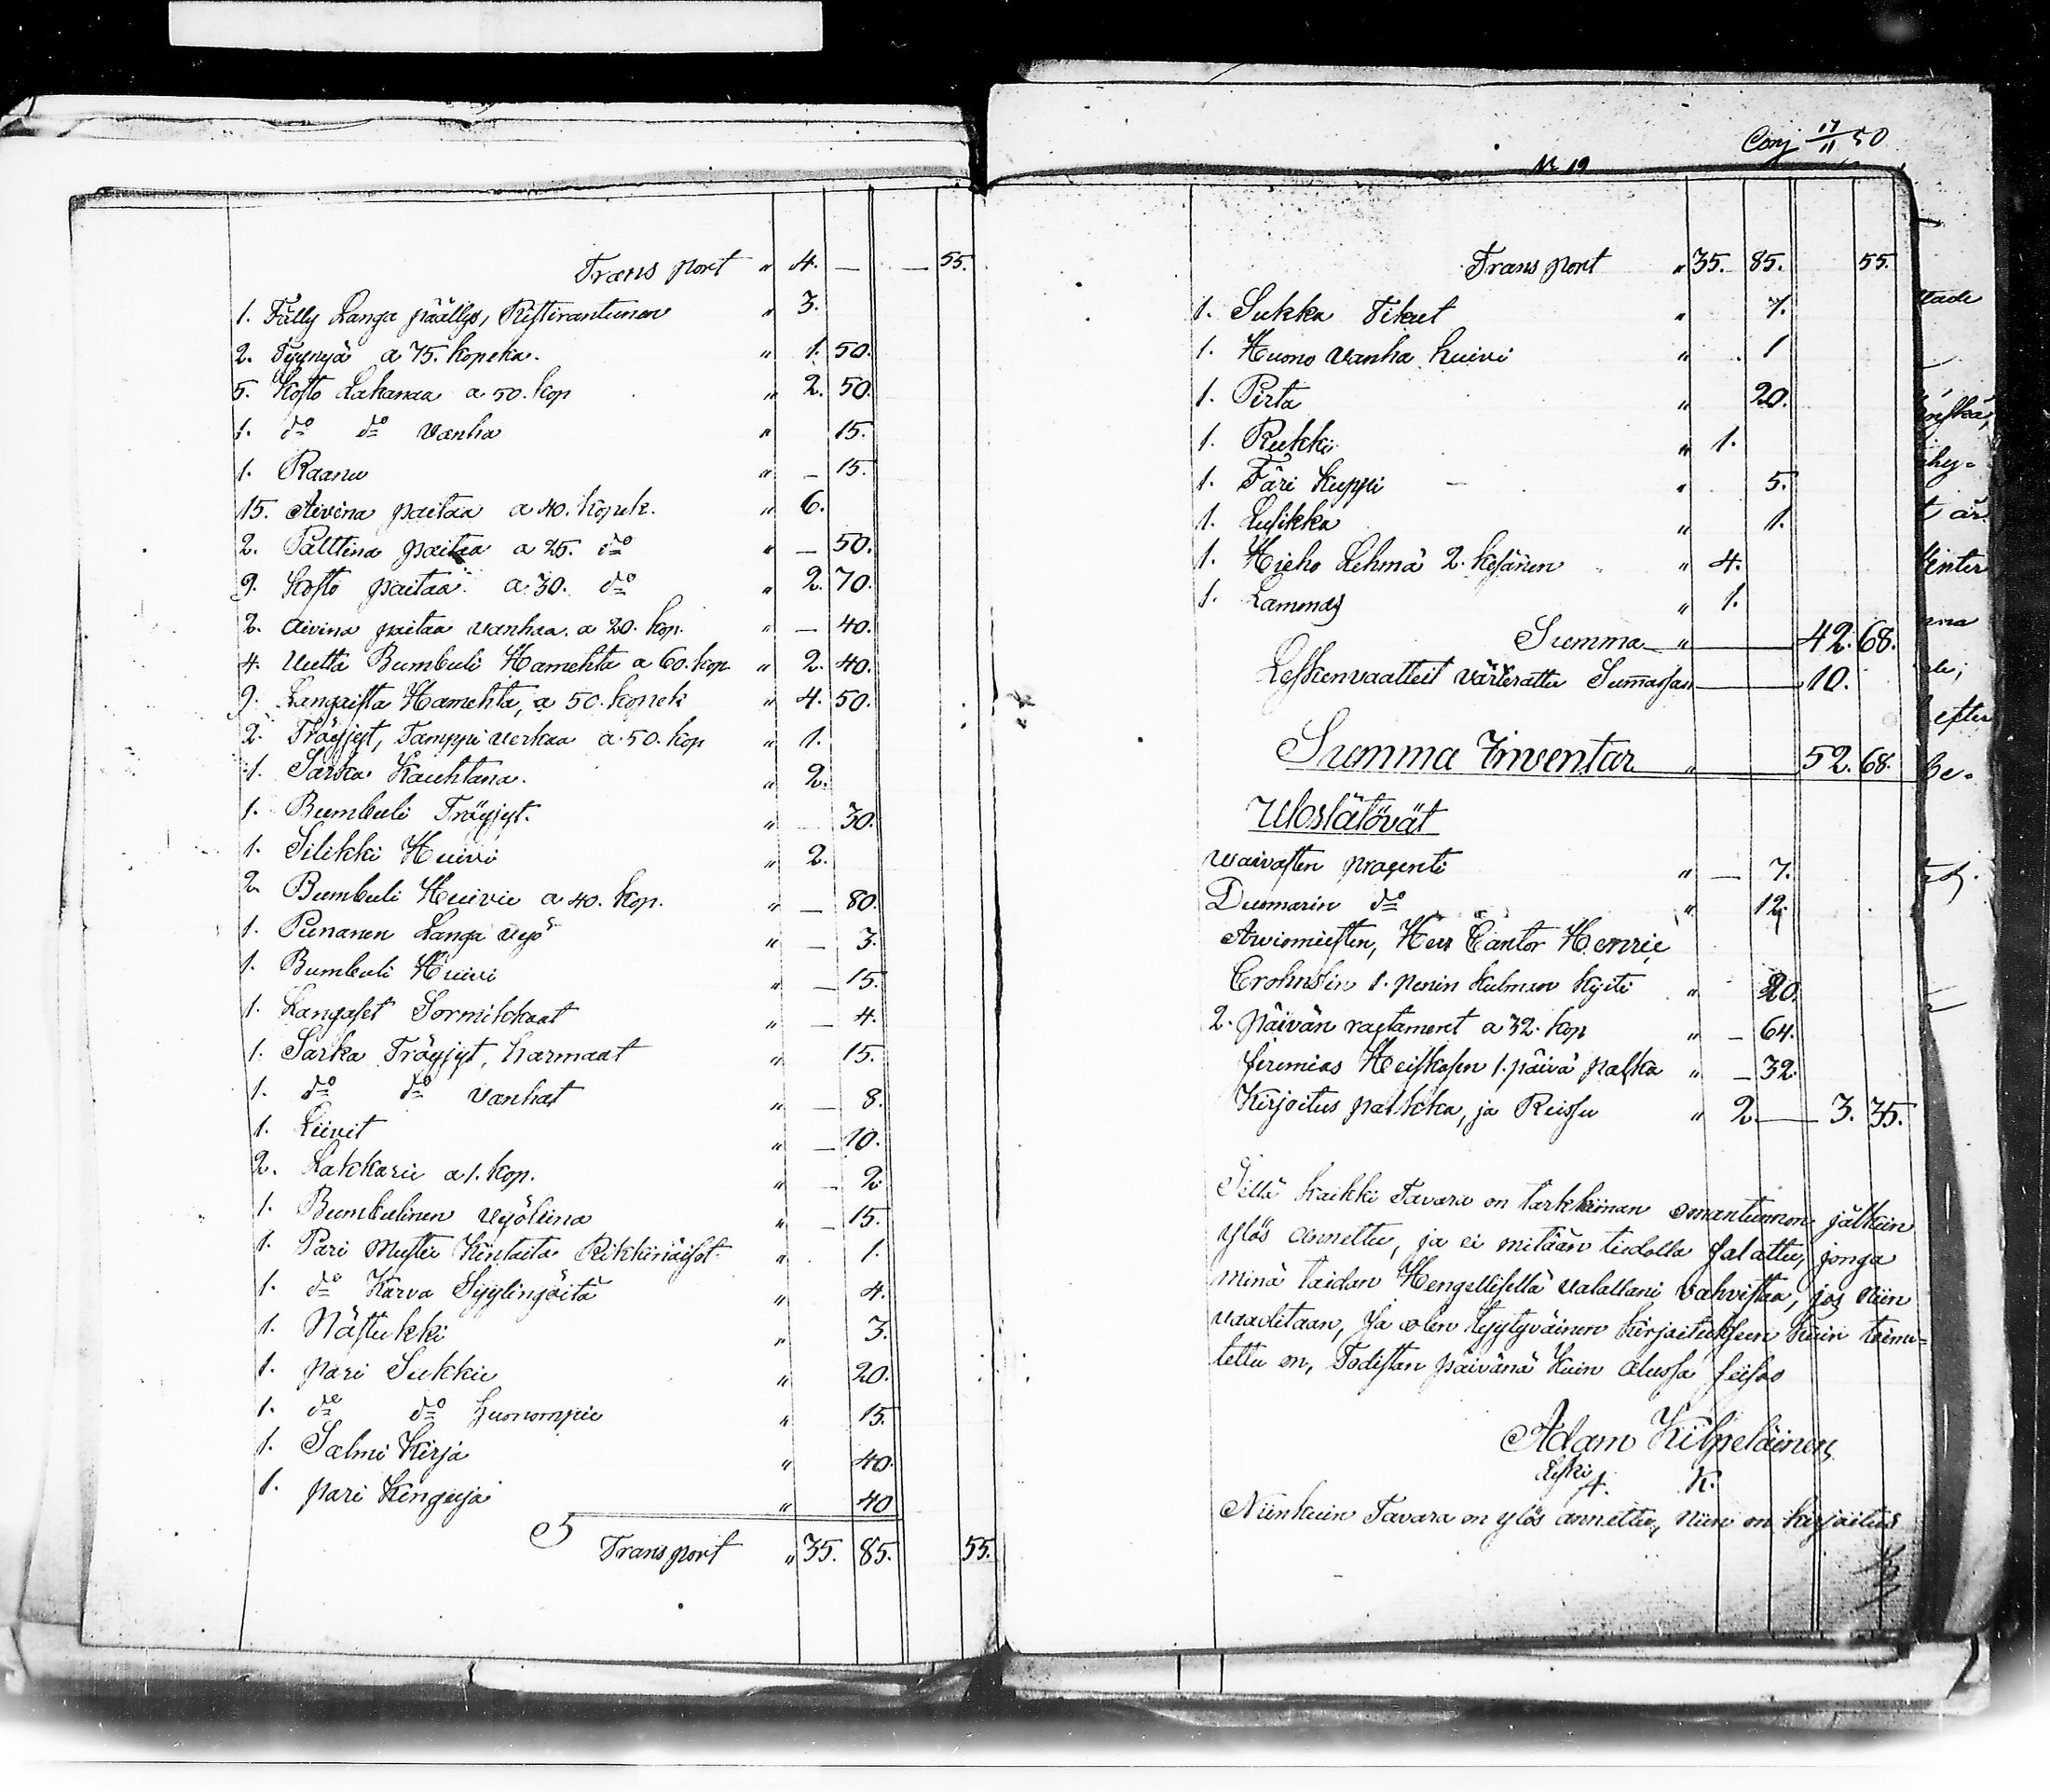 Transport " 4. — — 55.
1. Fälly Langa päällys, Ristirantunen " 3.
2. Tyynyä a 75. kopeka. " 1. 50.
5. Kosto Lakanaa a 50. kop " 2. 50.
1. do do vanha " 15.
1. Raanu " — 15.
15. Aivina paitaa a 40. kopek. " 6.
2. Palttina paitaa a 25. do " — 50.
9. Kosto paitaa a 30. do " 2. 70.
2. Aivina paitaa vanhaa. a 20. kop. " — 40.
4. Uutta Bumbuli Hamehta a 60. kop " 2. 40.
9. Langaista Hamehta, a 50. kopek " 4. 50.
2. Tröyjyt, Tamppi verkaa a 50. kop " 1.
1. Sarka Kauhtana. " 2.
1. Bumbuli Tröyjyt. " 30.
1. Silikki Huivi " 2.
2. Bumbuli Huivia a 40. kop. " — 80.
1. Punanen Langa vyö " — 3.
1. Bumbuli Huivi " — 15.
1. Kangaset Sormikkaat " — 4.
1. Sarka Tröyjyt, harmaat " 15.
1. do do vanhat " — 8.
1. Liivit " — 10.
2. Lakkaria a 1. kop. " — 2.
1. Bumbulinen vyöliina " — 15.
1. Pari Mustia Kintaita Rikkinäiset " 1.
1. do Karva Syylingöitä " 4.
1. Nästukki " 3.
1. pari Sukkia " 20.
1. do do huonompia " 15.
1. Salmi Kirja " 40.
1. pari Kengijä " 40
Transport " 35. 85. 55.
Conj 17/11 50
No 19
Transport " 35. 85. 55.
1. Sukka Tikut " 7.
1. Huono vanha huivi " 1
1. Pirta " 20.
1. Rukki " 1.
1. Färi kuppi — " 5.
1. Lusikka " 1.
1. Hieho Lehmä 2. kesänen " 4.
1. Lammas " 1.
Summa " — 42. 68.
Leskenvaatteit värterattu Summassan — 10.
Summa Inventar " 52. 68.
Uloslätövät
Waivasten prosenti " — 7.
Duomarin do " 12.
Arviomiesten, Herr Cantor Henric
Crohnsin 1. penin kulman kyiti " 20.
2. päivän ractament a 32. kop " — 64.
Jeremias Heiskasen 1. päivä palka " — 32.
Kirjoitus palkka, ja Reissu " 2. — 3. 35.
Sillä kaikki Tavara on tarkkiman omantunnon jälkiin
ylös annettu, ja ei mitään tiedolla salattu, jonga
minä taidan Hengellisellä valallani vahvistaa, jos niin
vaaditaan, Ja olen tyytyväinen kirjoitukseen kuin toimi-
tettu on, Todistan päivänä kuin alussa seisoo
Adam Kilpeläinen
Leski
A. K.
Niinkuin Tavara on ylös annettu, niin on kirjoitus